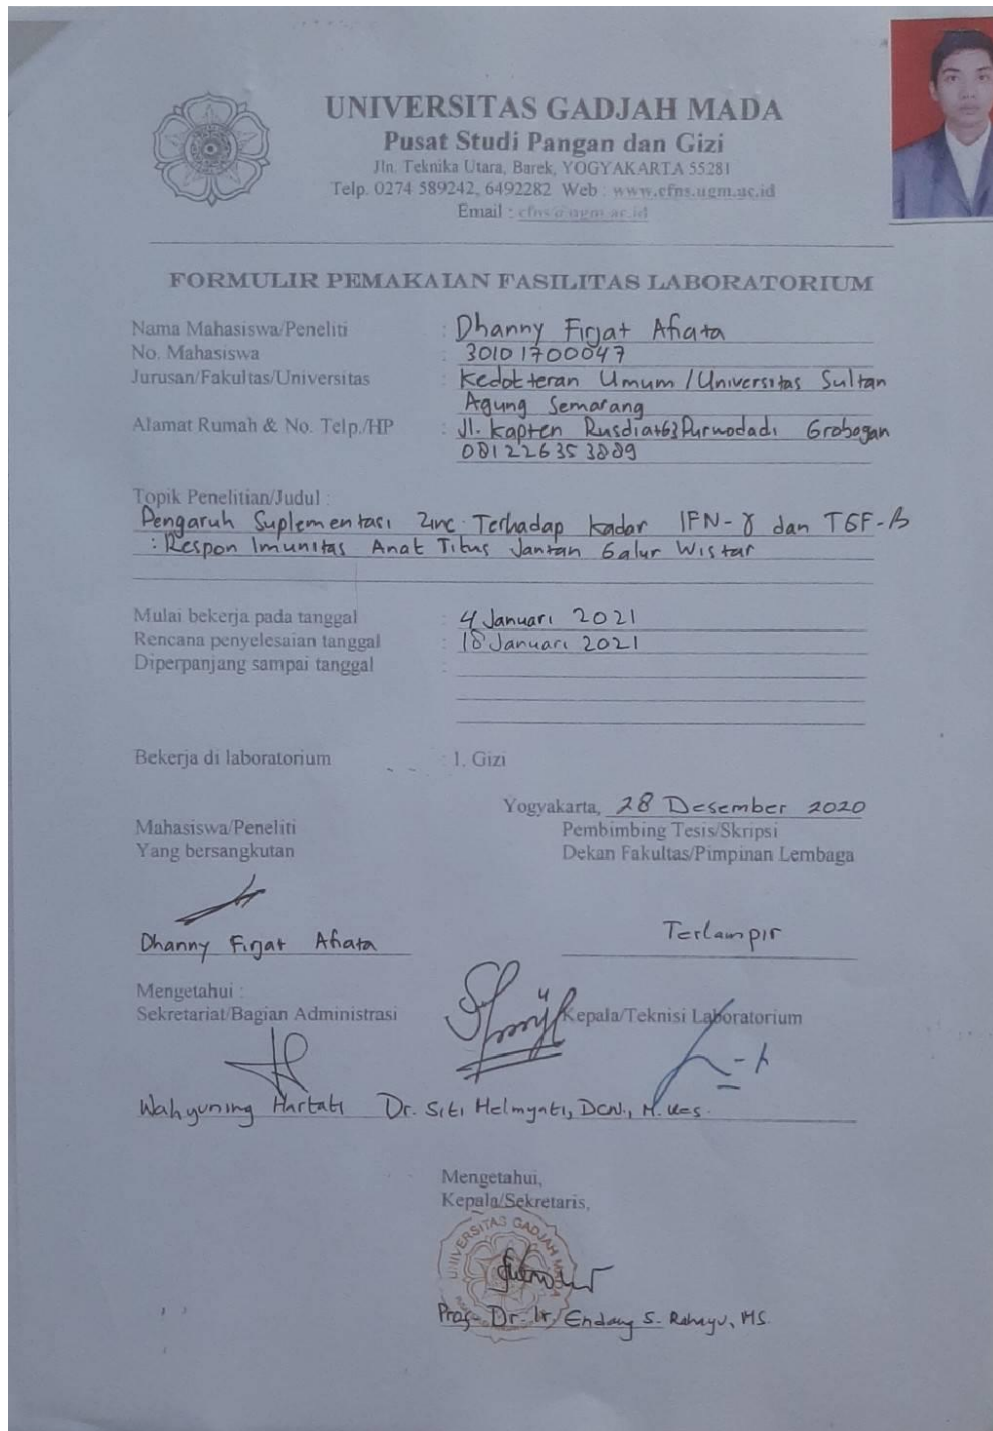 UNIVERSITAS GADJAH MADA
Pusat Studi Pangan dan Gizi
Jln. Teknika Utara, Barek, YOGYAKARTA 55281
Telp. 0274 589242, 6492282 Web : www.cfns.ugm.ac.id
Email : cfns@ugm.ac.id
FORMULIR PEMAKAIAN FASILITAS LABORATORIUM
Nama Mahasiswa/Peneliti : Dhanny Firjat Afiata
No. Mahasiswa : 30101700047
Jurusan/Fakultas/Universitas : Kedokteran Umum / Universitas Sultan
Agung Semarang
Alamat Rumah & No. Telp./HP : Jl. Kapten Rusdiat 63 Purwodadi Grobogan
081226353889
Topik Penelitian/Judul :
Pengaruh Suplementasi Zinc Terhadap Kadar IFN-γ dan TGF-β
: Respon Imunitas Anak Titus Jantan Galur Wistar
Mulai bekerja pada tanggal : 4 Januari 2021
Rencana penyelesaian tanggal : 18 Januari 2021
Diperpanjang sampai tanggal :
Bekerja di laboratorium : 1. Gizi
Yogyakarta, 28 Desember 2020
Mahasiswa/Peneliti Pembimbing Tesis/Skripsi
Yang bersangkutan Dekan Fakultas/Pimpinan Lembaga
Dhanny Firjat Afiata Terlampir
Mengetahui :
Sekretariat/Bagian Administrasi Kepala/Teknisi Laboratorium
Wahyuning Hartati Dr. Siti Helmyati, DCN., M.Kes.
Mengetahui,
Kepala/Sekretaris,
UNIVERSITAS GADJAH MADA
Prof. Dr. Ir. Endang S. Rahayu, MS.